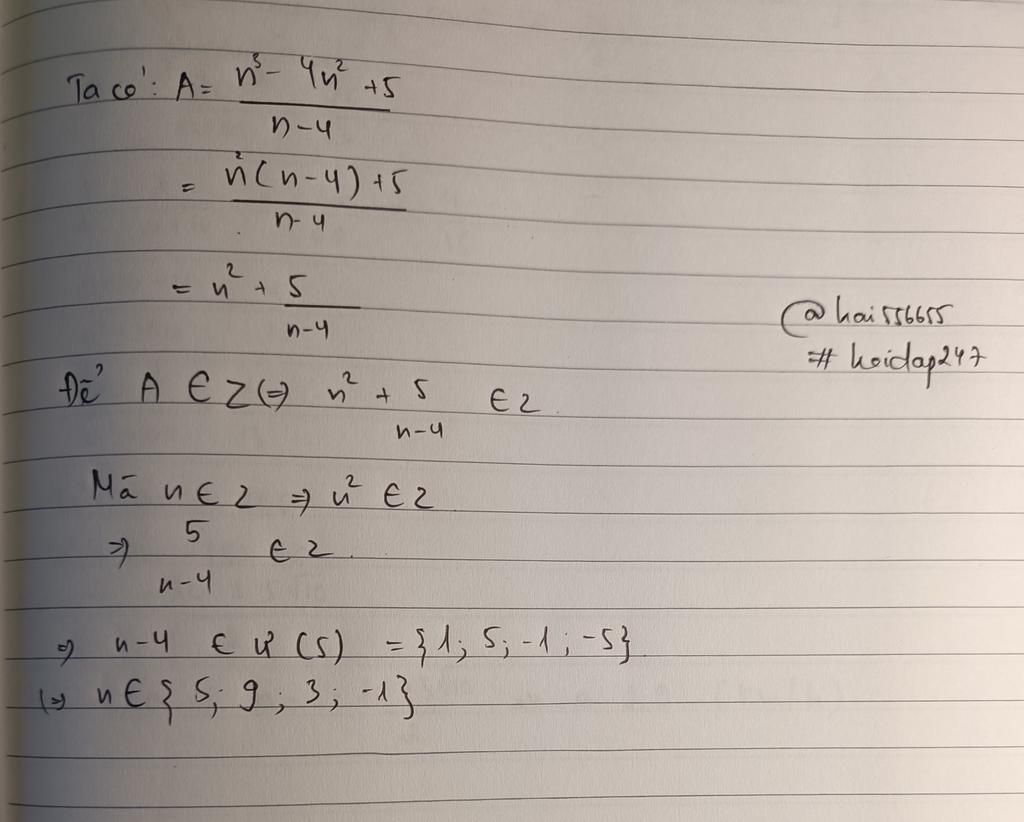 Ta có: A = n³ - 4n² + 5 / n - 4
= n²(n - 4) + 5 / n - 4
= n² + 5 / n - 4
@hai556655
# hoidap247
Để A ∈ Z (=) n² + 5 / n - 4 ∈ Z.
Mà n ∈ Z => n² ∈ Z
=> 5 / n - 4 ∈ Z.
=> n - 4 ∈ Ư (5) = {1; 5; -1; -5}
(=> n ∈ {5; 9; 3; -1}